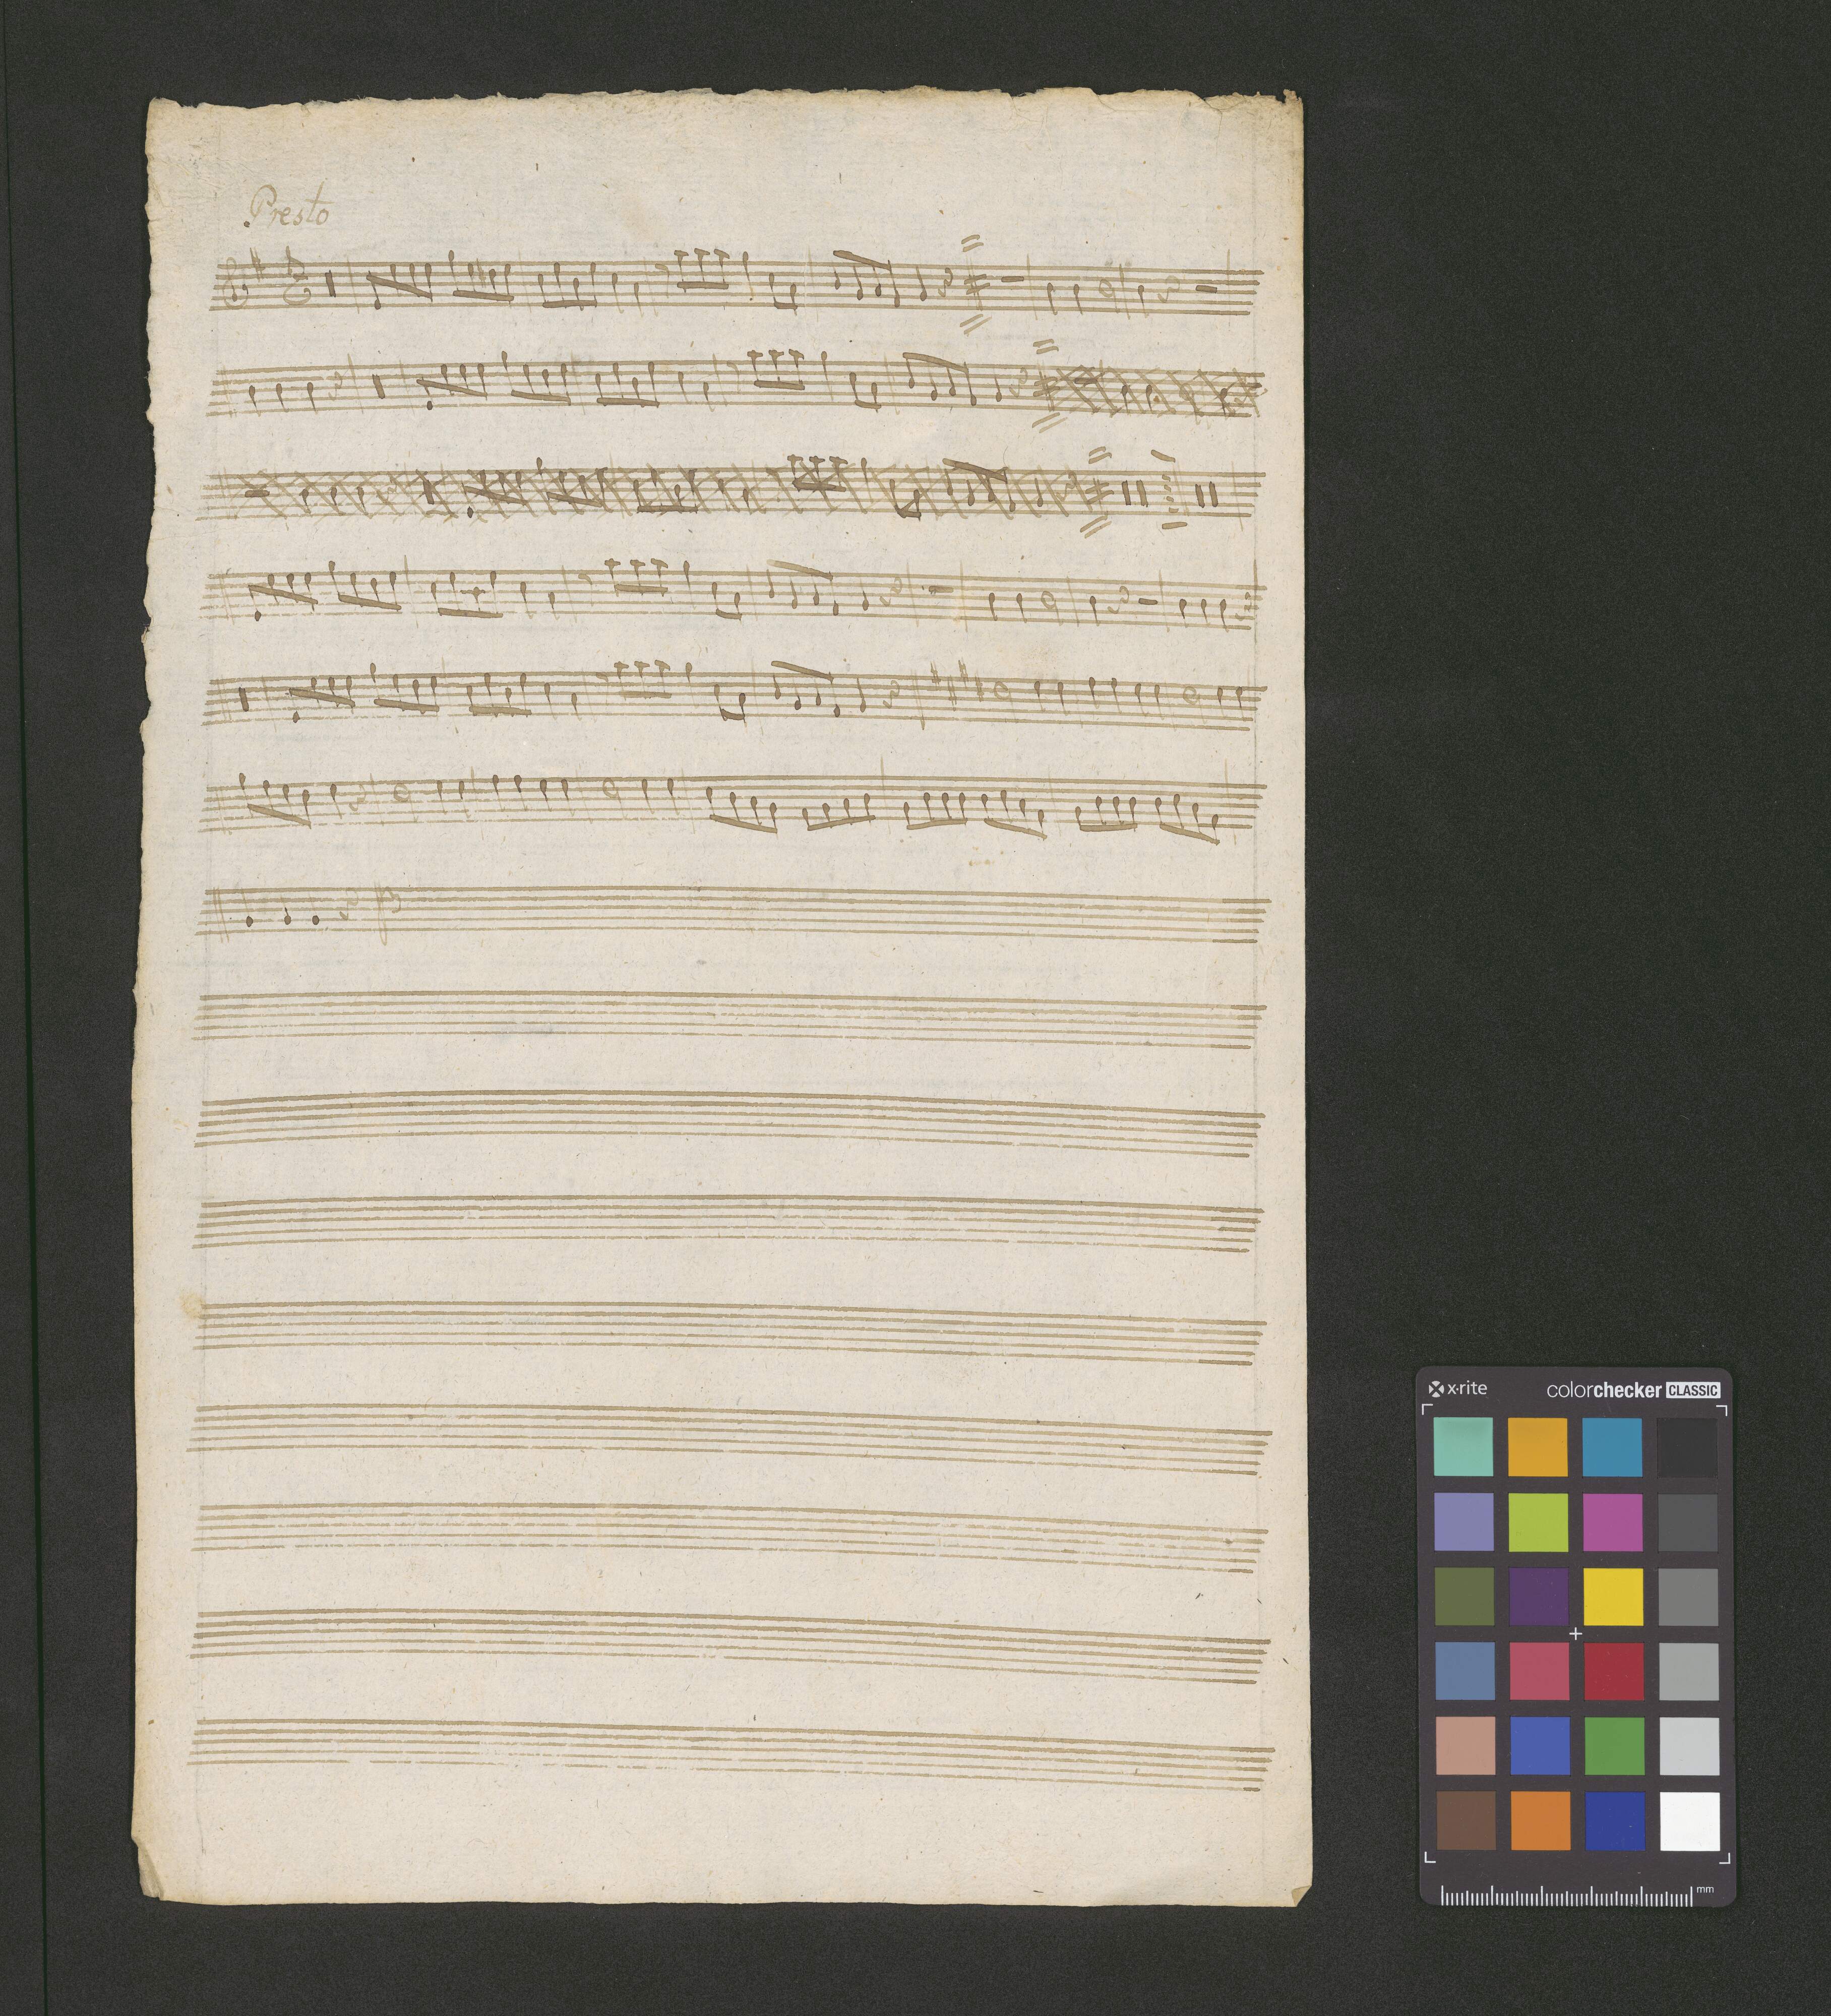 Presto
x·rite colorchecker CLASSIC
mm